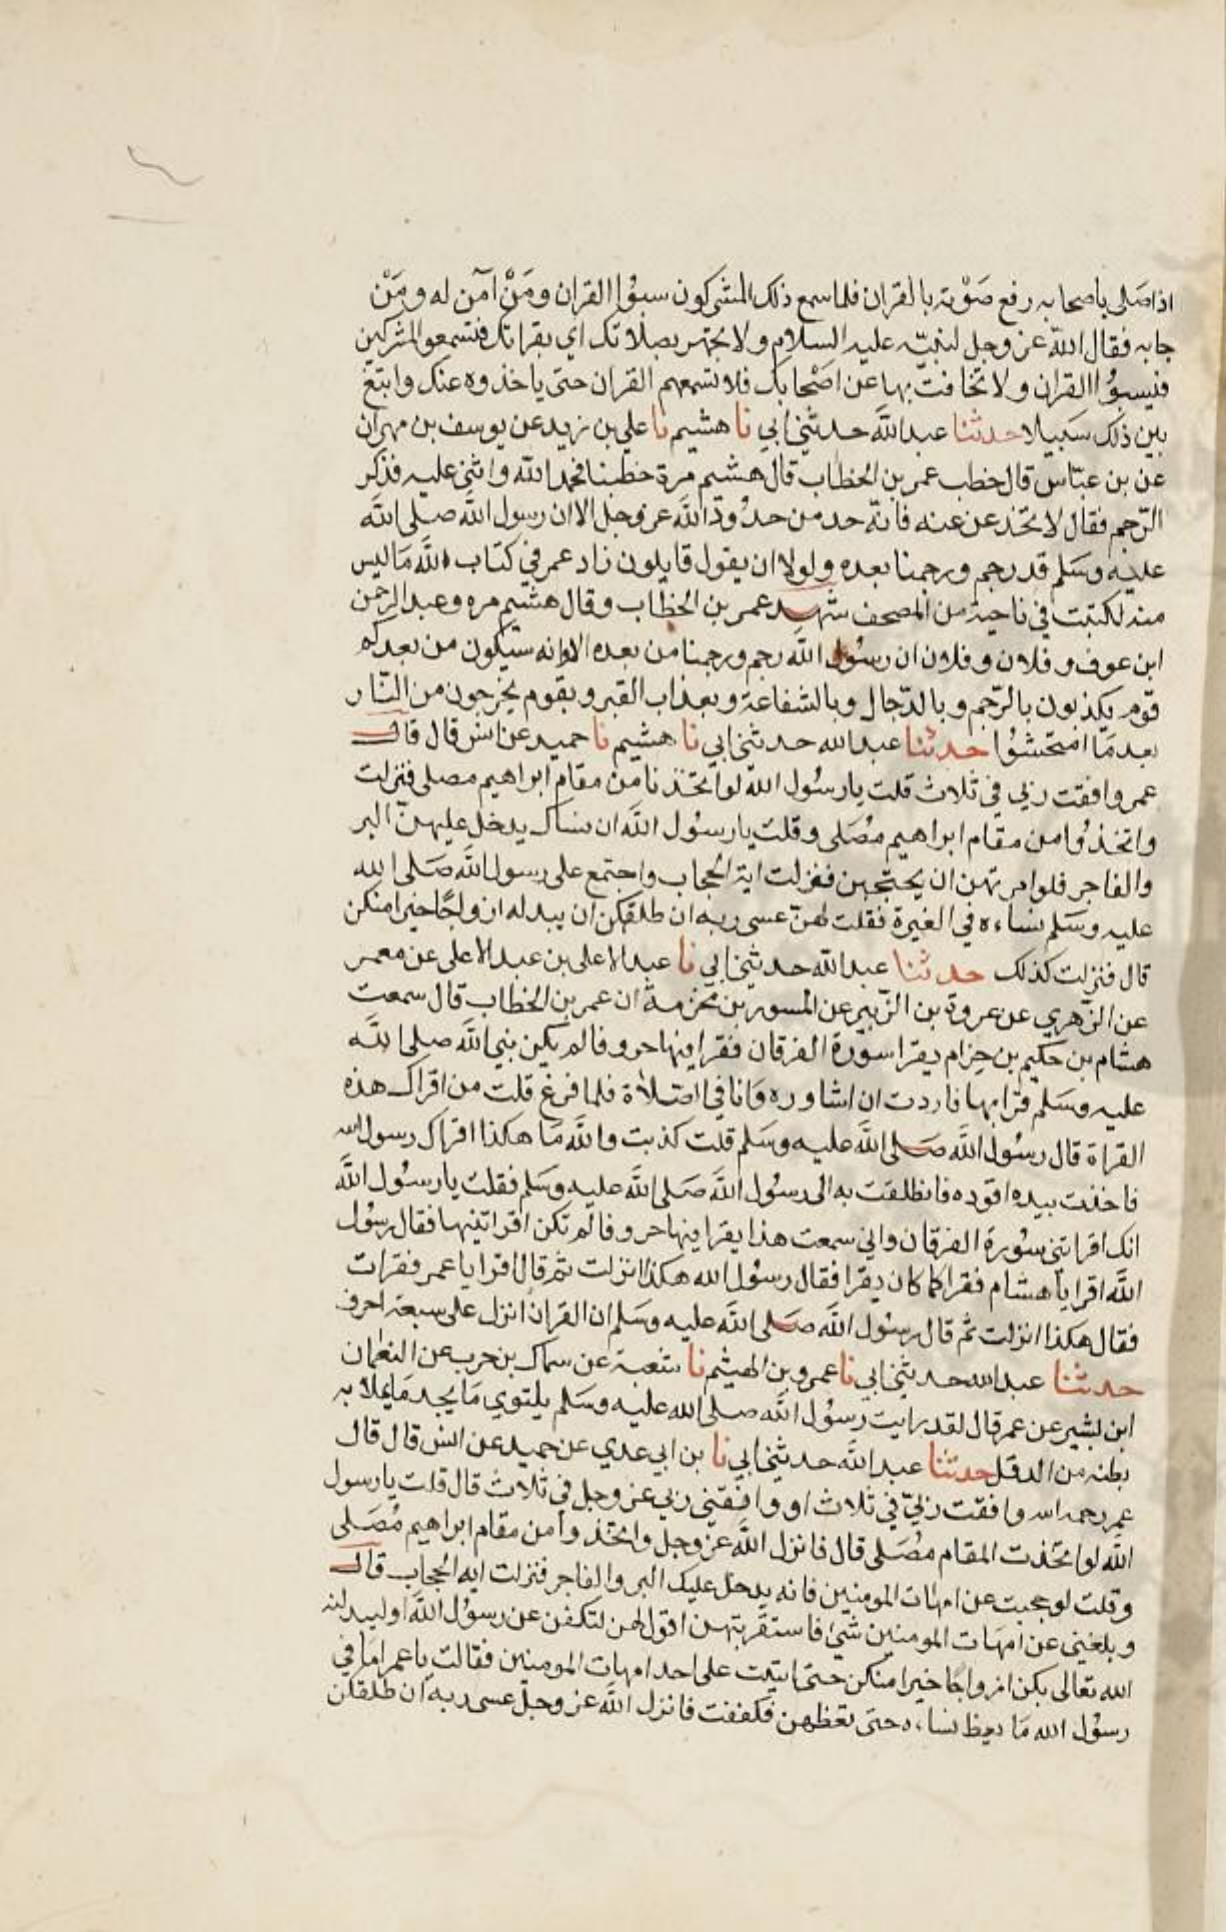 اذا صلى باصحابه رفع صَوْته بالقران فلما سمع ذلك المشركون سبوُا القران ومَنْ انزله ومَنْ
جا به فقال اللّه عز وجل لنبيّه عليه السلام ولا تجهر بصلاتك اي بقراتك فتسمعو المشركين
فيسبوُا القران ولا تخافت بها عن اصْحابك فلا تسمعهم القران حتى ياخذوه عنك وابتغ
بين ذلك سَبيلا حدثنا عبد اللّه حدثني ابي نا هشيم نا علي بن زيد عن يوسف بن مهران
عن بن عبّاس قال خطب عمر بن الخطاب قال هشيم مرة خطبنا فحمد اللّه واثنى عليه فذكر
الرّجم فقال لا تخدعن عنه فانّه حد من حدُودّ اللّه عز وجل الا ان رسول اللّه صلى اللّه
عليه وسَلم قد رجم ورجمنا بعده ولولا ان يقول قايلون زاد عمر في كتاب اللّه مَا ليس
منه لكتبت في ناحية من المصحف شهد عمر بن الخطاب وقال هشيم مره وعبد الرحمن
ابن عوف وفلان وفلان ان رسُول اللّه رجم ورجمنا من بعده الا وانه سَيكون من بعدكم
قوم يكذبون بالرّجم وبالدّجال وبالشفاعة وبعذاب القبر وبقوم يخرجون من النّار
بعد مَا امتحشوُا حدثنا عبد الله حدثني ابي نا هشيم نا حميد عن انس قال قال
عمر وافقت ربي في ثلاث قلت يا رسُول اللّه لو اتخذنا من مقام ابراهيم مصلى فنزلت
واتخذُوا من مقام ابراهيم مصَلى وقلت يا رسُول اللّه ان نساك يدخل عليهنّ البر
والفاجر فلو امرتهن ان يحتجبن فنزلت اية الحجاب واجتمع على رسول اللّه صَلى الله
عليه وسَلم نساءه في الغيرة فقلت لهنّ عسى ربه ان طلقكن ان يبدله ازواجًا خيرا منكن
قال فنزلت كذلك حدثنا عبد اللّه حدثني ابي نا عبد الاعلى بن عبد الاعلى عن معمر
عن الزّهري عن عروة بن الزّبير عن المسور بن مخزمةَ ان عمر بن الخطاب قال سمعت
هشام بن حكيم بن حِزام يقرا سورة الفرقان فقرا فيها حروفا لم يكن نبي اللّه صلى اللّه
عليه وسَلم قرانيها فاردت ان اشاوره وَانا في الصّلاة فلما فرغ قلت من اقراك هذه
القراة قال رسُول اللّه صَلى اللّه عليه وسَلم قلت كذبت واللّه مَا هكذا اقراك رسول الله
فاخذت بيده اقوده فانطلقت به الى رسُول اللّه صَلى اللّه عليه وسَلم فقلت يا رسُول اللّه
انك اقراتني سُورة الفرقان واني سمعت هذا يقرا فيها حروفا لم تكن اقراتنيها فقال رسُول
اللّه اقرا يا هشام فقرا كما كان يقرا فقال رسُول الله هكذا انزلت ثم قال اقرا يا عمر فقرات
فقال هكذا انزلت ثم قال رسُول اللّه صَلى اللّه عليه وسَلم ان القران انزل على سبعة احرف
حدثنا عبد الله حدثني ابي نا عمرو بن الهيثم نا شعبة عن سماك بن حرب عن النعمان
ابن بشير عن عمر قال لقد رايت رسُول اللّه صلى الله عليه وسَلم يلتوي مَا يجد مَا يملا به
بطنه من الدقل حدثنا عبد اللّه حدثني ابي نا بن ابي عدي عن حميد عن انس قال قال
عمر رحمه الله وافقت ربيّ في ثلاث او وافقني ربي عز وجل في ثلاث قال قلت يا رسول
اللّه لو اتخذت المقام مصَلى قال فانزل اللّه عز وجل واتخذوا من مقام ابراهيم مُصَلى
وقلت لو حجبت عن امهات المومنين فانه يدخل عليك البر والفاجر فنزلت ايه الحجاب قال
وبلغني عن امهَات المومنين شي فاستقَربتهن اقول لهن لتكفن عن رسوُل اللّه او ليبدلنه
الله تعالى بكن ازواجًا خيرا منكن حتى اتيت على احد امهات المومنين فقالت يا عمر امَا في
رسُول الله مَا يعظ نساءه حتى تعظهن فكففت فانزل اللّه عز وجل عسى ربه ان طلقكن